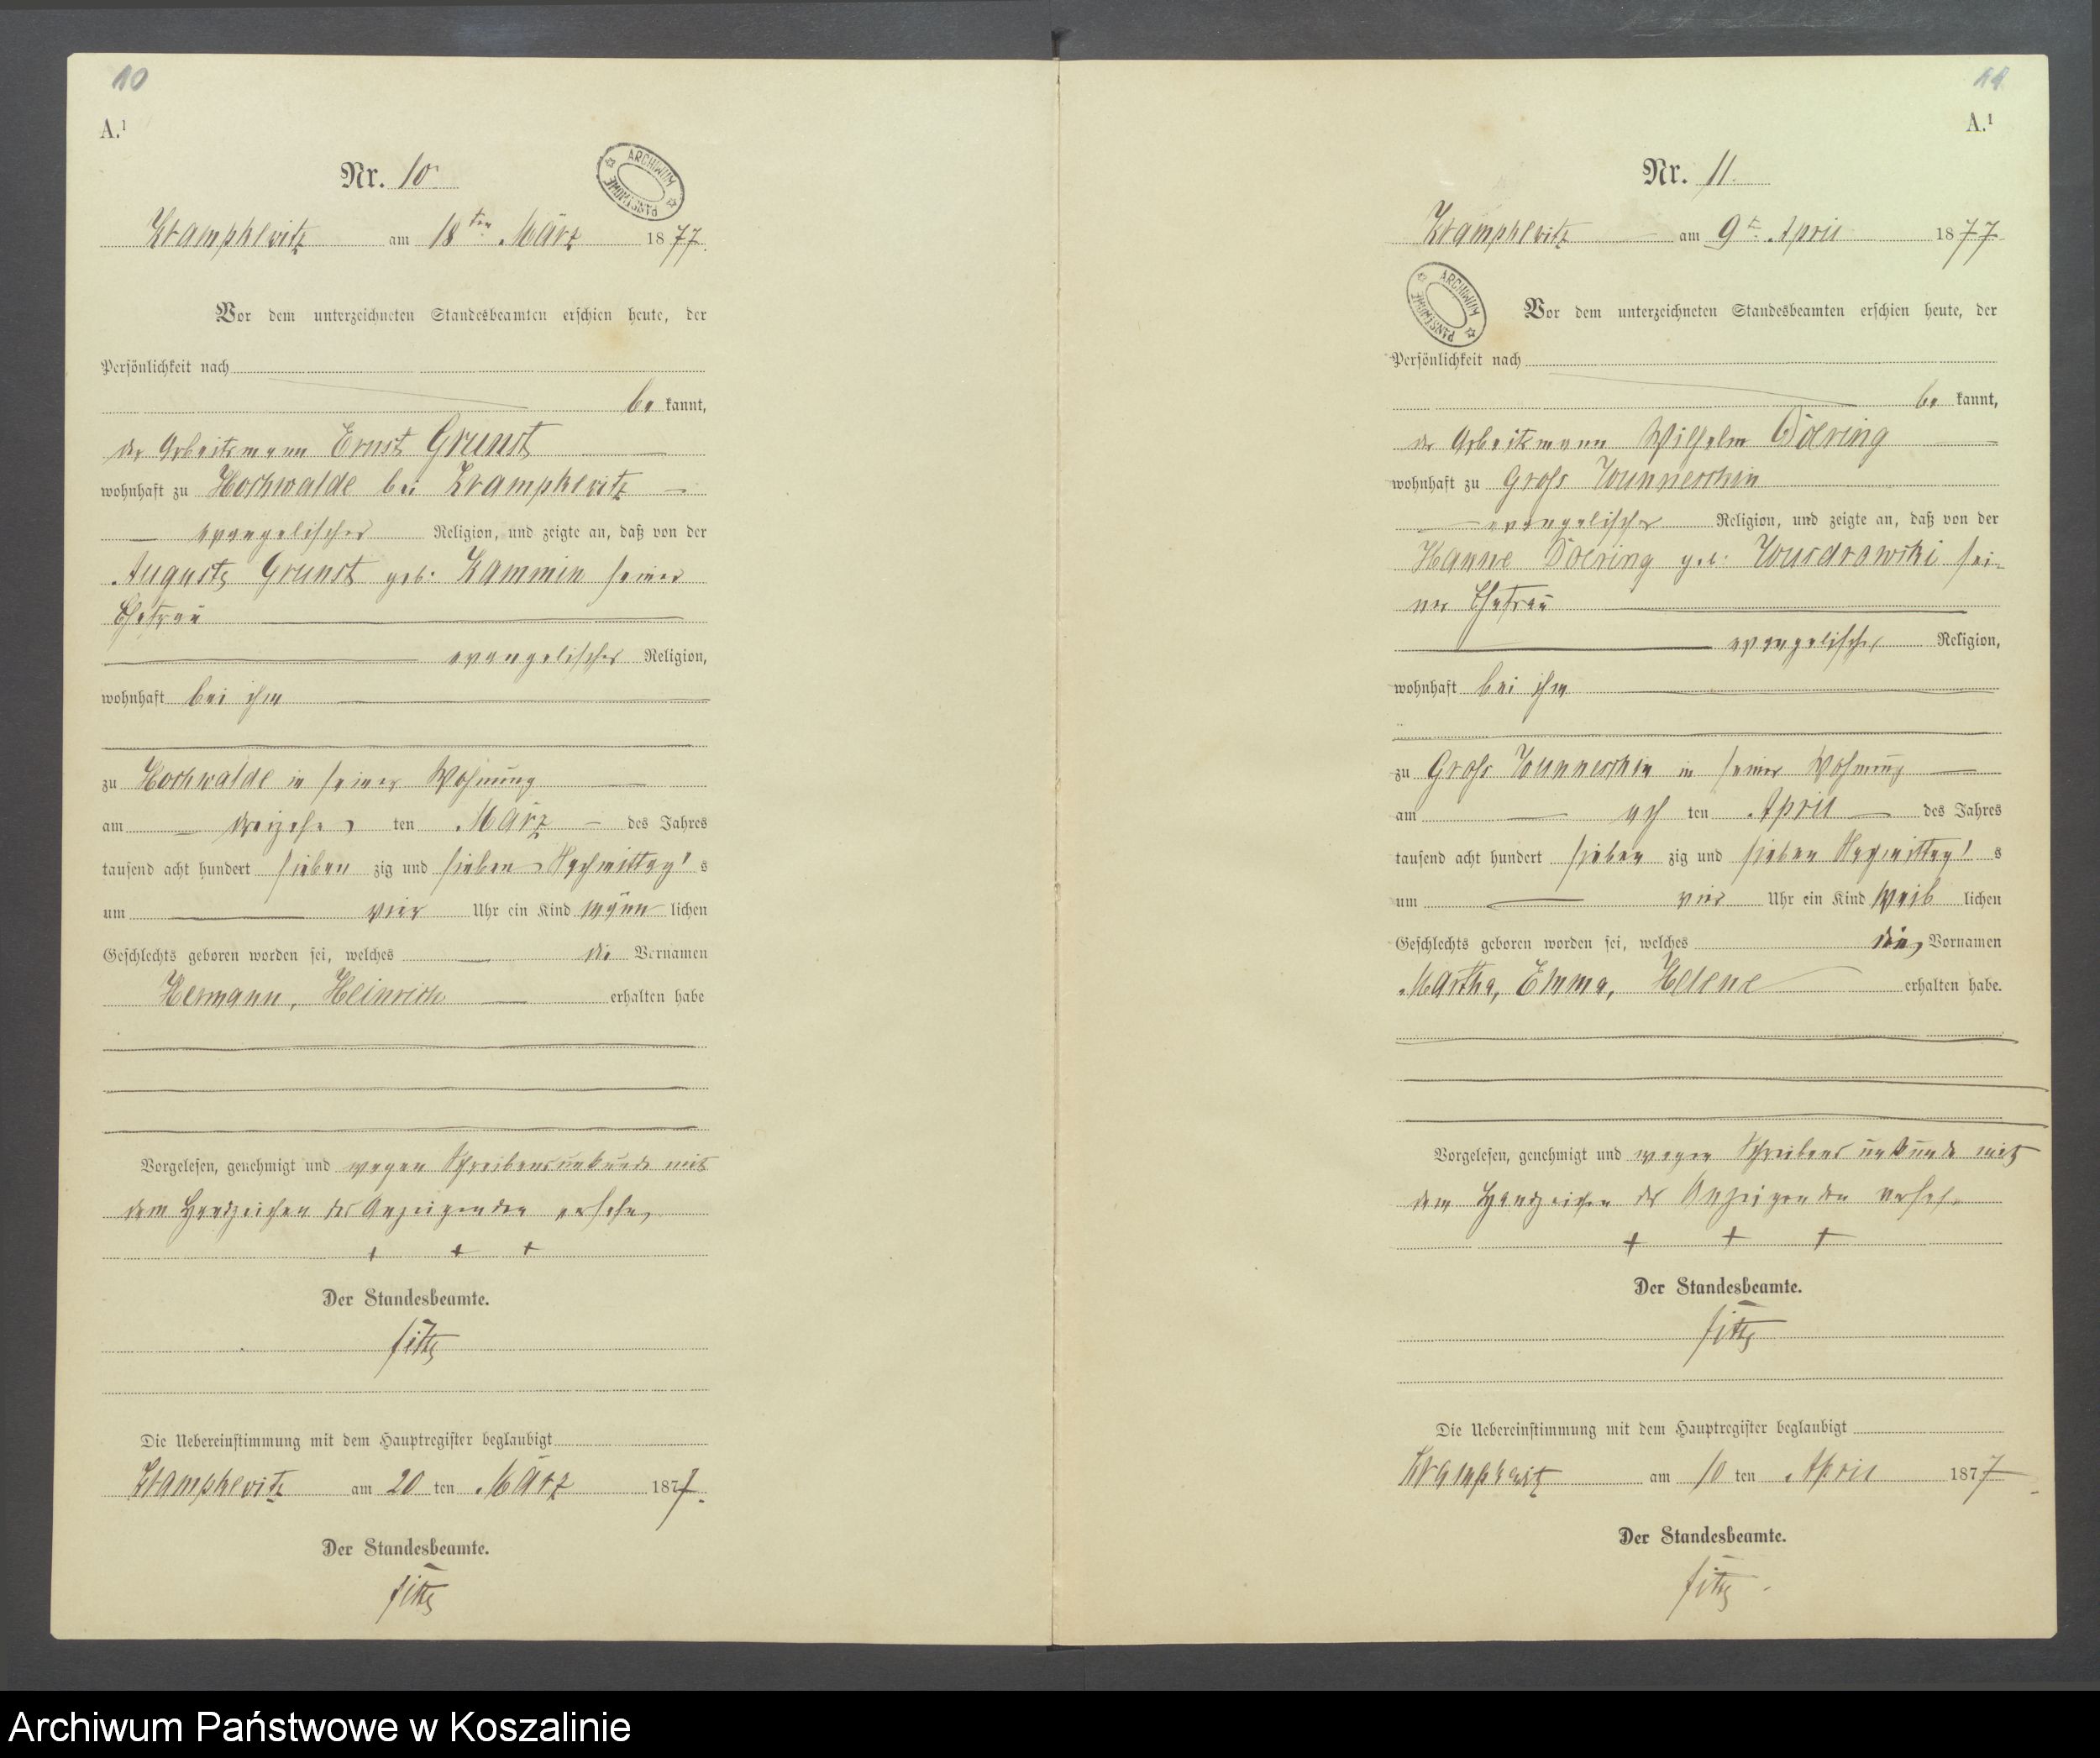 10
A.¹
Nr. 10.
ARCHIWUM PAŃSTWOWE
Krampkewitz am 18ten März 1877.
Vor dem unterzeichneten Standesbeamten erschien heute, der
Persönlichkeit nach
be kannt,
der Arbeitsmann Ernst Grunst
wohnhaft zu Hochwalde bei Krampkewitz
evangelischer Religion, und zeigte an, daß von der
Auguste Grunst geb. Kammin seiner
Ehefrau
evangelischer Religion,
wohnhaft bei ihm
zu Hochwalde in seiner Wohnung
am dreizehn ten März des Jahres
tausend acht hundert sieben zig und sieben Nachmittag s
um vier Uhr ein Kind männ lichen
Geschlechts geboren worden sei, welches die Vornamen
Hermann, Heinrich erhalten habe
Vorgelesen, genehmigt und wegen Schreibensunkunde mit
dem Handzeichen des Anzeigenden versehen
+ + +
Der Standesbeamte.
Die Uebereinstimmung mit dem Hauptregister beglaubigt
Krampkewitz am 20 ten März 1877.
Der Standesbeamte.
11
A.¹
Nr. 11.
Krampkewitz am 9t. April 1877
ARCHIWUM PAŃSTWOWE
Vor dem unterzeichneten Standesbeamten erschien heute, der
Persönlichkeit nach
be kannt,
der Arbeitsmann Wilhelm Doering
wohnhaft zu Gross Wunneschin
evangelischer Religion, und zeigte an, daß von der
Hanne Doering geb. sei-
ner Ehefrau
evangelischer Religion,
wohnhaft bei ihm
zu Gross Wunneschin in seiner Wohnung
am ach ten April des Jahres
tausend acht hundert sieben zig und sieben Nachmittag s
um vier Uhr ein Kind weib lichen
Geschlechts geboren worden sei, welches die Vornamen
Martha, Emma, Helene erhalten habe.
Vorgelesen, genehmigt und wegen Schreibensunkunde mit
dem Handzeichen des Anzeigenden versehen
+ + +
Der Standesbeamte.
Die Uebereinstimmung mit dem Hauptregister beglaubigt
Krampkewitz am 10 ten April 1877
Der Standesbeamte.
Archiwum Państwowe w Koszalinie